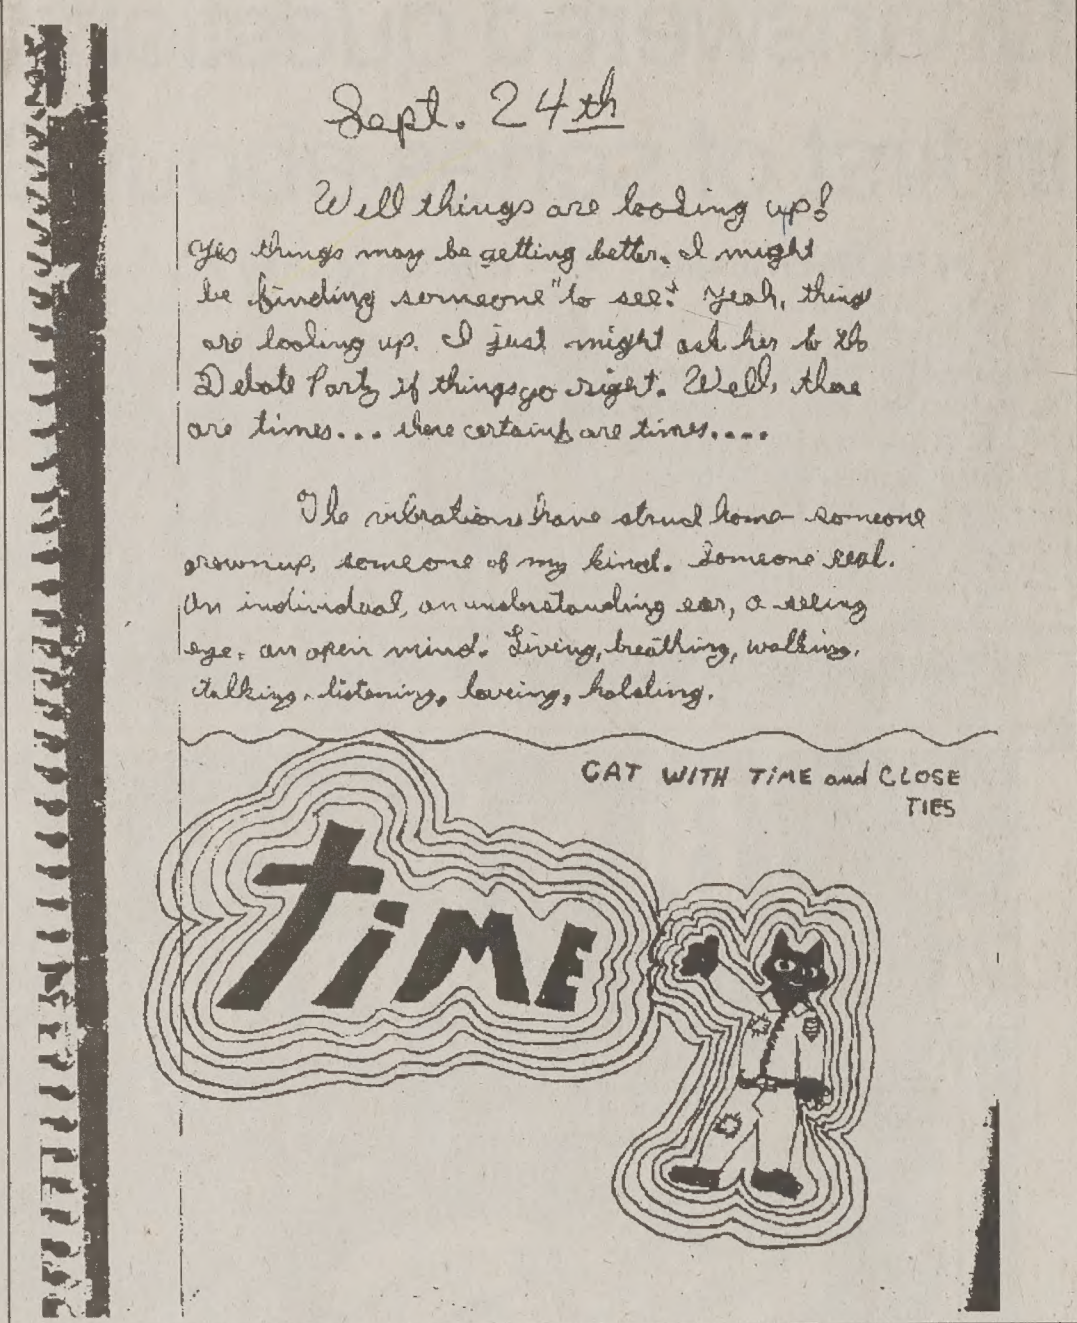 Sept. 24th
Well things are looking up!
Yes things may be getting better. I might
be finding someone "to see." Yeah, things
are looking up. I just might ask her to the
Debate Party if things go right. Well, there
are times... there certainly are times....
The vibrations have struck home someone
grownup, someone of my kind. Someone real.
An individual, an understanding ear, a seeing
eye, an open mind. Living, breathing, walking,
talking, listening, loveing, holding.
CAT WITH TiME and CLOSE
TIES
TiME